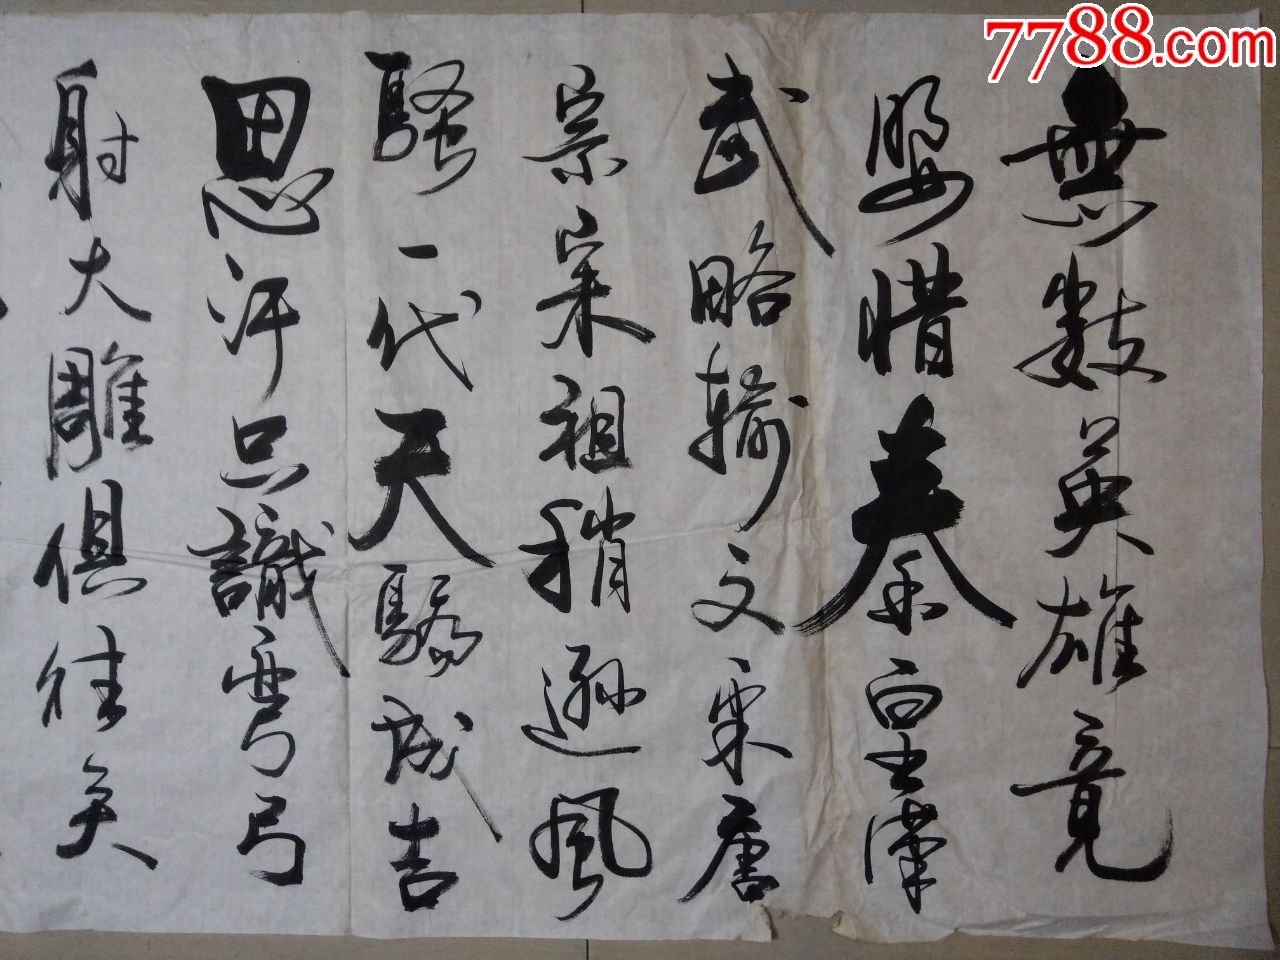 7788.com
無數英雄竟
腰惜秦皇漢
武略輸文采唐
宗宋祖稍遜風
騷一代天驕成吉
思汗只識彎弓
射大雕俱往矣